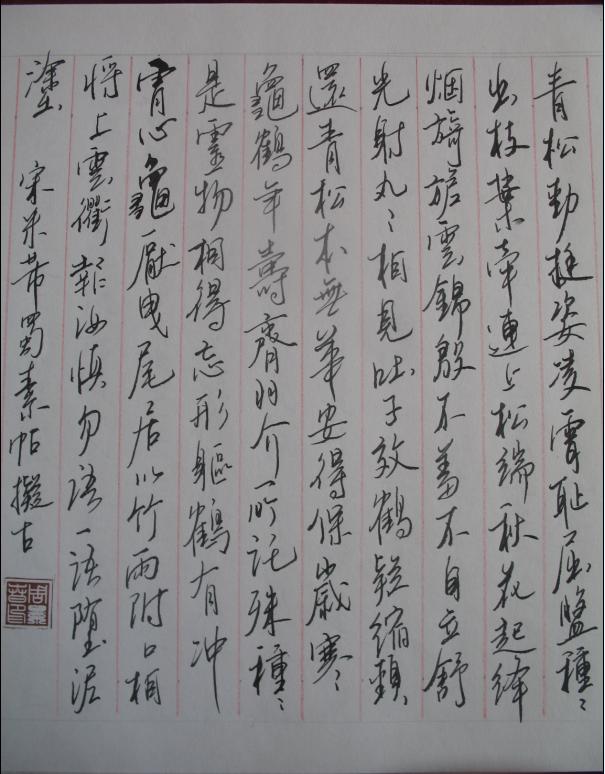 青松勁挺姿凌霄恥屈盤種〻
出枝葉牽連上松端秋花起絳
烟旖旎雲錦殷不羞不自立舒
光射丸〻相見吐子效鶴疑縮頸
還青松本無華安得保歲寒〻
龜鶴年壽齊羽介所託殊種〻
是靈物相得忘形軀鶴有冲
霄心龜厭曳尾居以竹兩附口相
將上雲衢報汝慎勿語一語墮泥
塗 宋米芾蜀素帖擬古